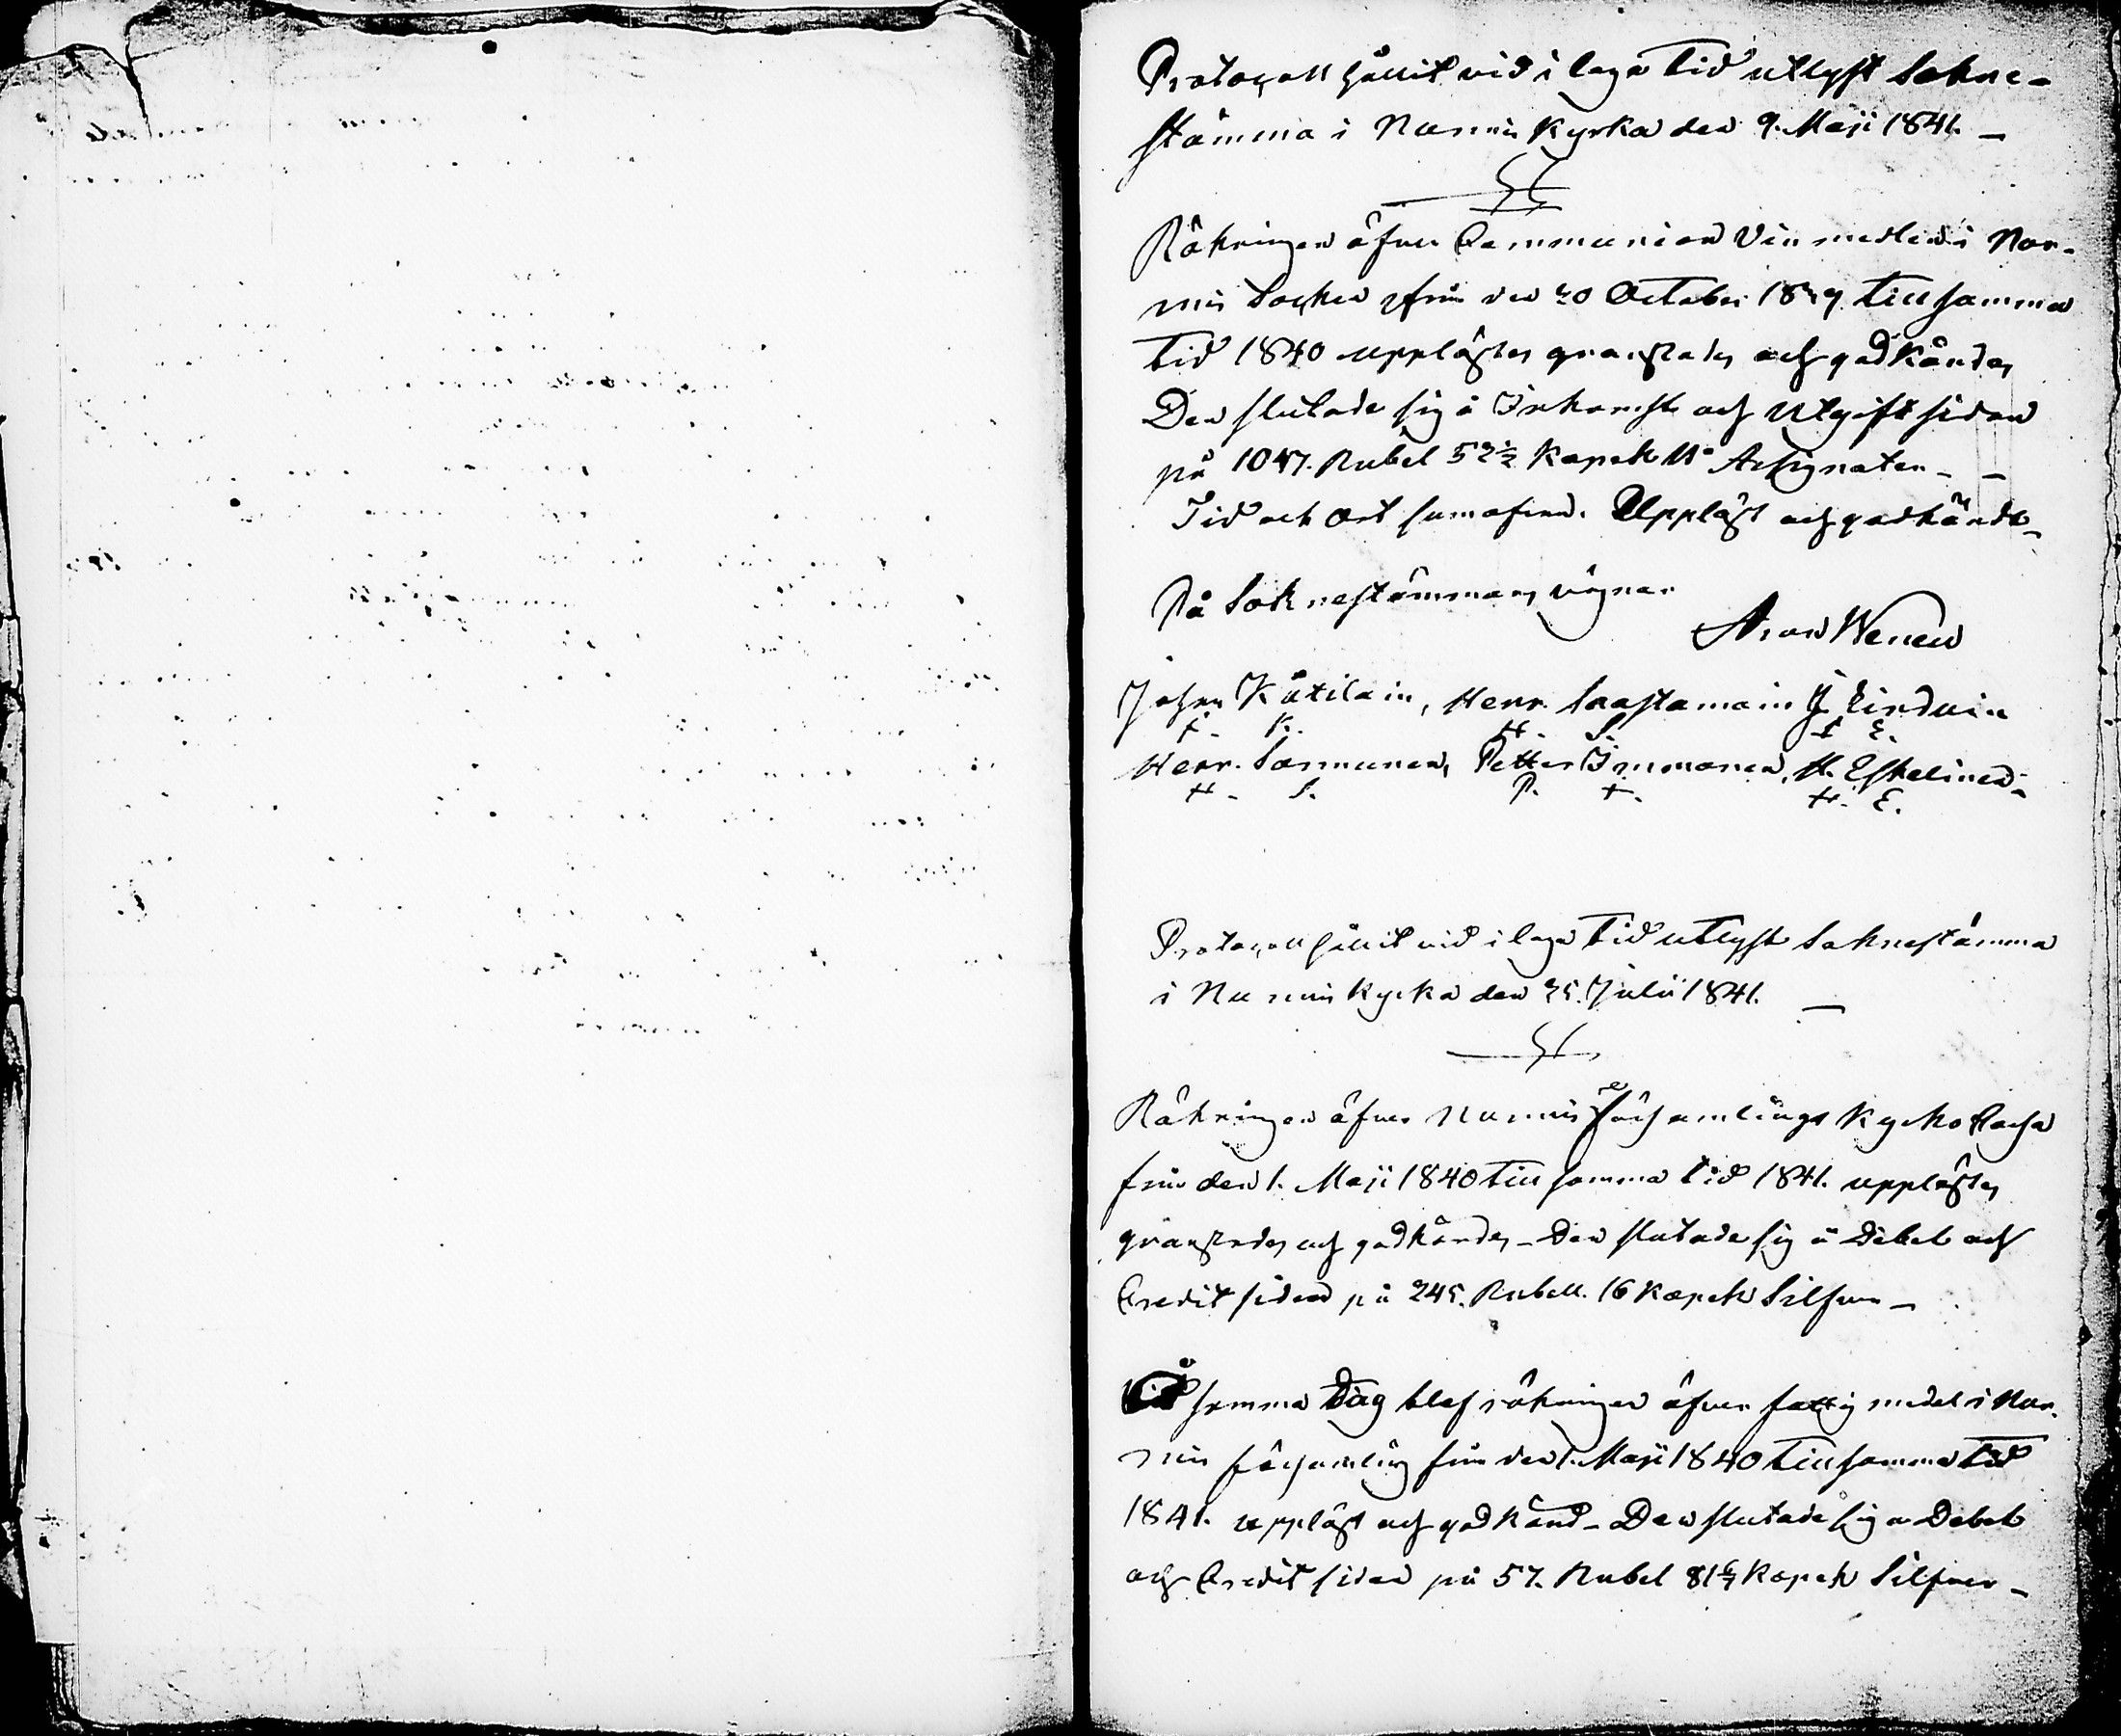 Protocoll hållit vid i laga tid utlyst Sokne-
stämma i Nurmis Kyrka den 9. Maji 1841. —
Räkningen öfver Communion Vin medlen i Nur-
mis Socken ifrån den 20 October 1839 till samma
tid 1840 upplästes granskades och godkändes
Den slutade sig å Inkomst och Utgift sidan
på 1047. Rubel 52½ Kopek Assignater — —
Tid och Ort som ofvan. Uppläst och godkändt —
På Soknestämmans vägnar
Aron Wenen
Johan Kätilain, Henr. Saastamoin J. Eindvin
I. K. H. S. I. E.
Henr. Sormunen, Petter Immonen, H. Eskelinen —
H. S. P. I. H. E.
Protocoll hållit vid i laga tid utlyst Soknestämma
i Nurmis Kyrka den 25. Julii 1841. —
Räkningen öfver Nurmis Församlings Kyrko Cassa
från den 1. Maji 1840 till samma tid 1841. upplästes
granskades och godkändes — Den slutade sig å Debet och
Credit sidan på 245. Rubell. 16 Kopek Silfver —
Å samma Dag blef räkningen öfver fattig medel i Nur-
mis församling från den 1. Maji 1840 till samma tid
1841. uppläst och godkänd — Den slutade sig å Debet
och Credit sidan på 57. Rubel 81 6/7 Kopek Silfver —